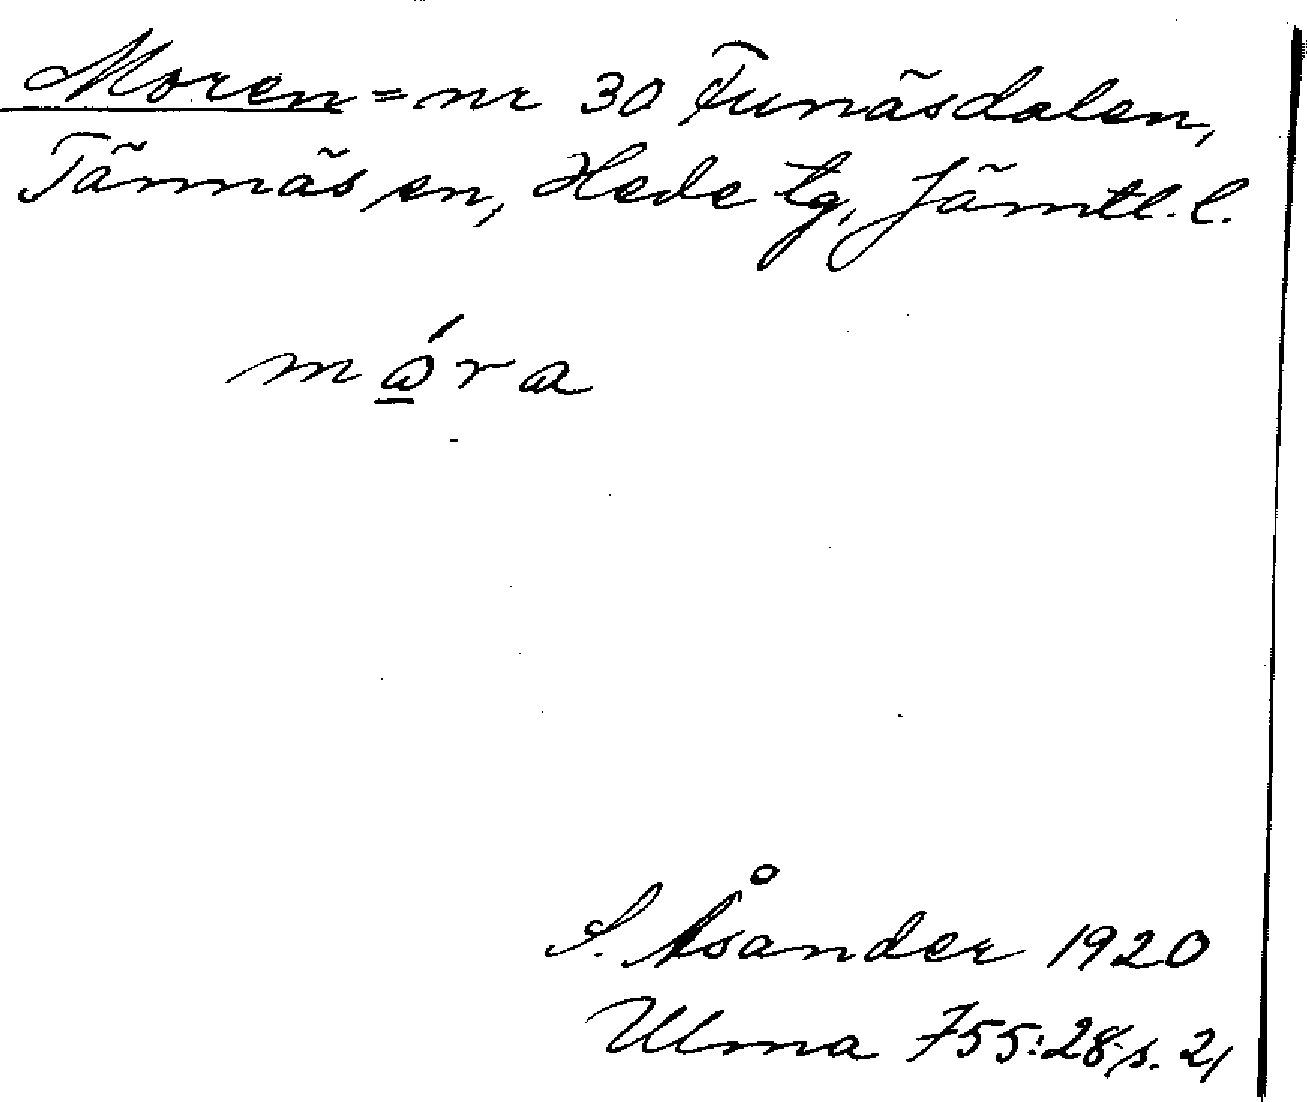 Moren = nr 30 Funäsdalen,
Tännäs sn, Hede tg, Jämtl. l.
mó̲ra
S. Åsander 1920
Ulma 755:28, s. 21